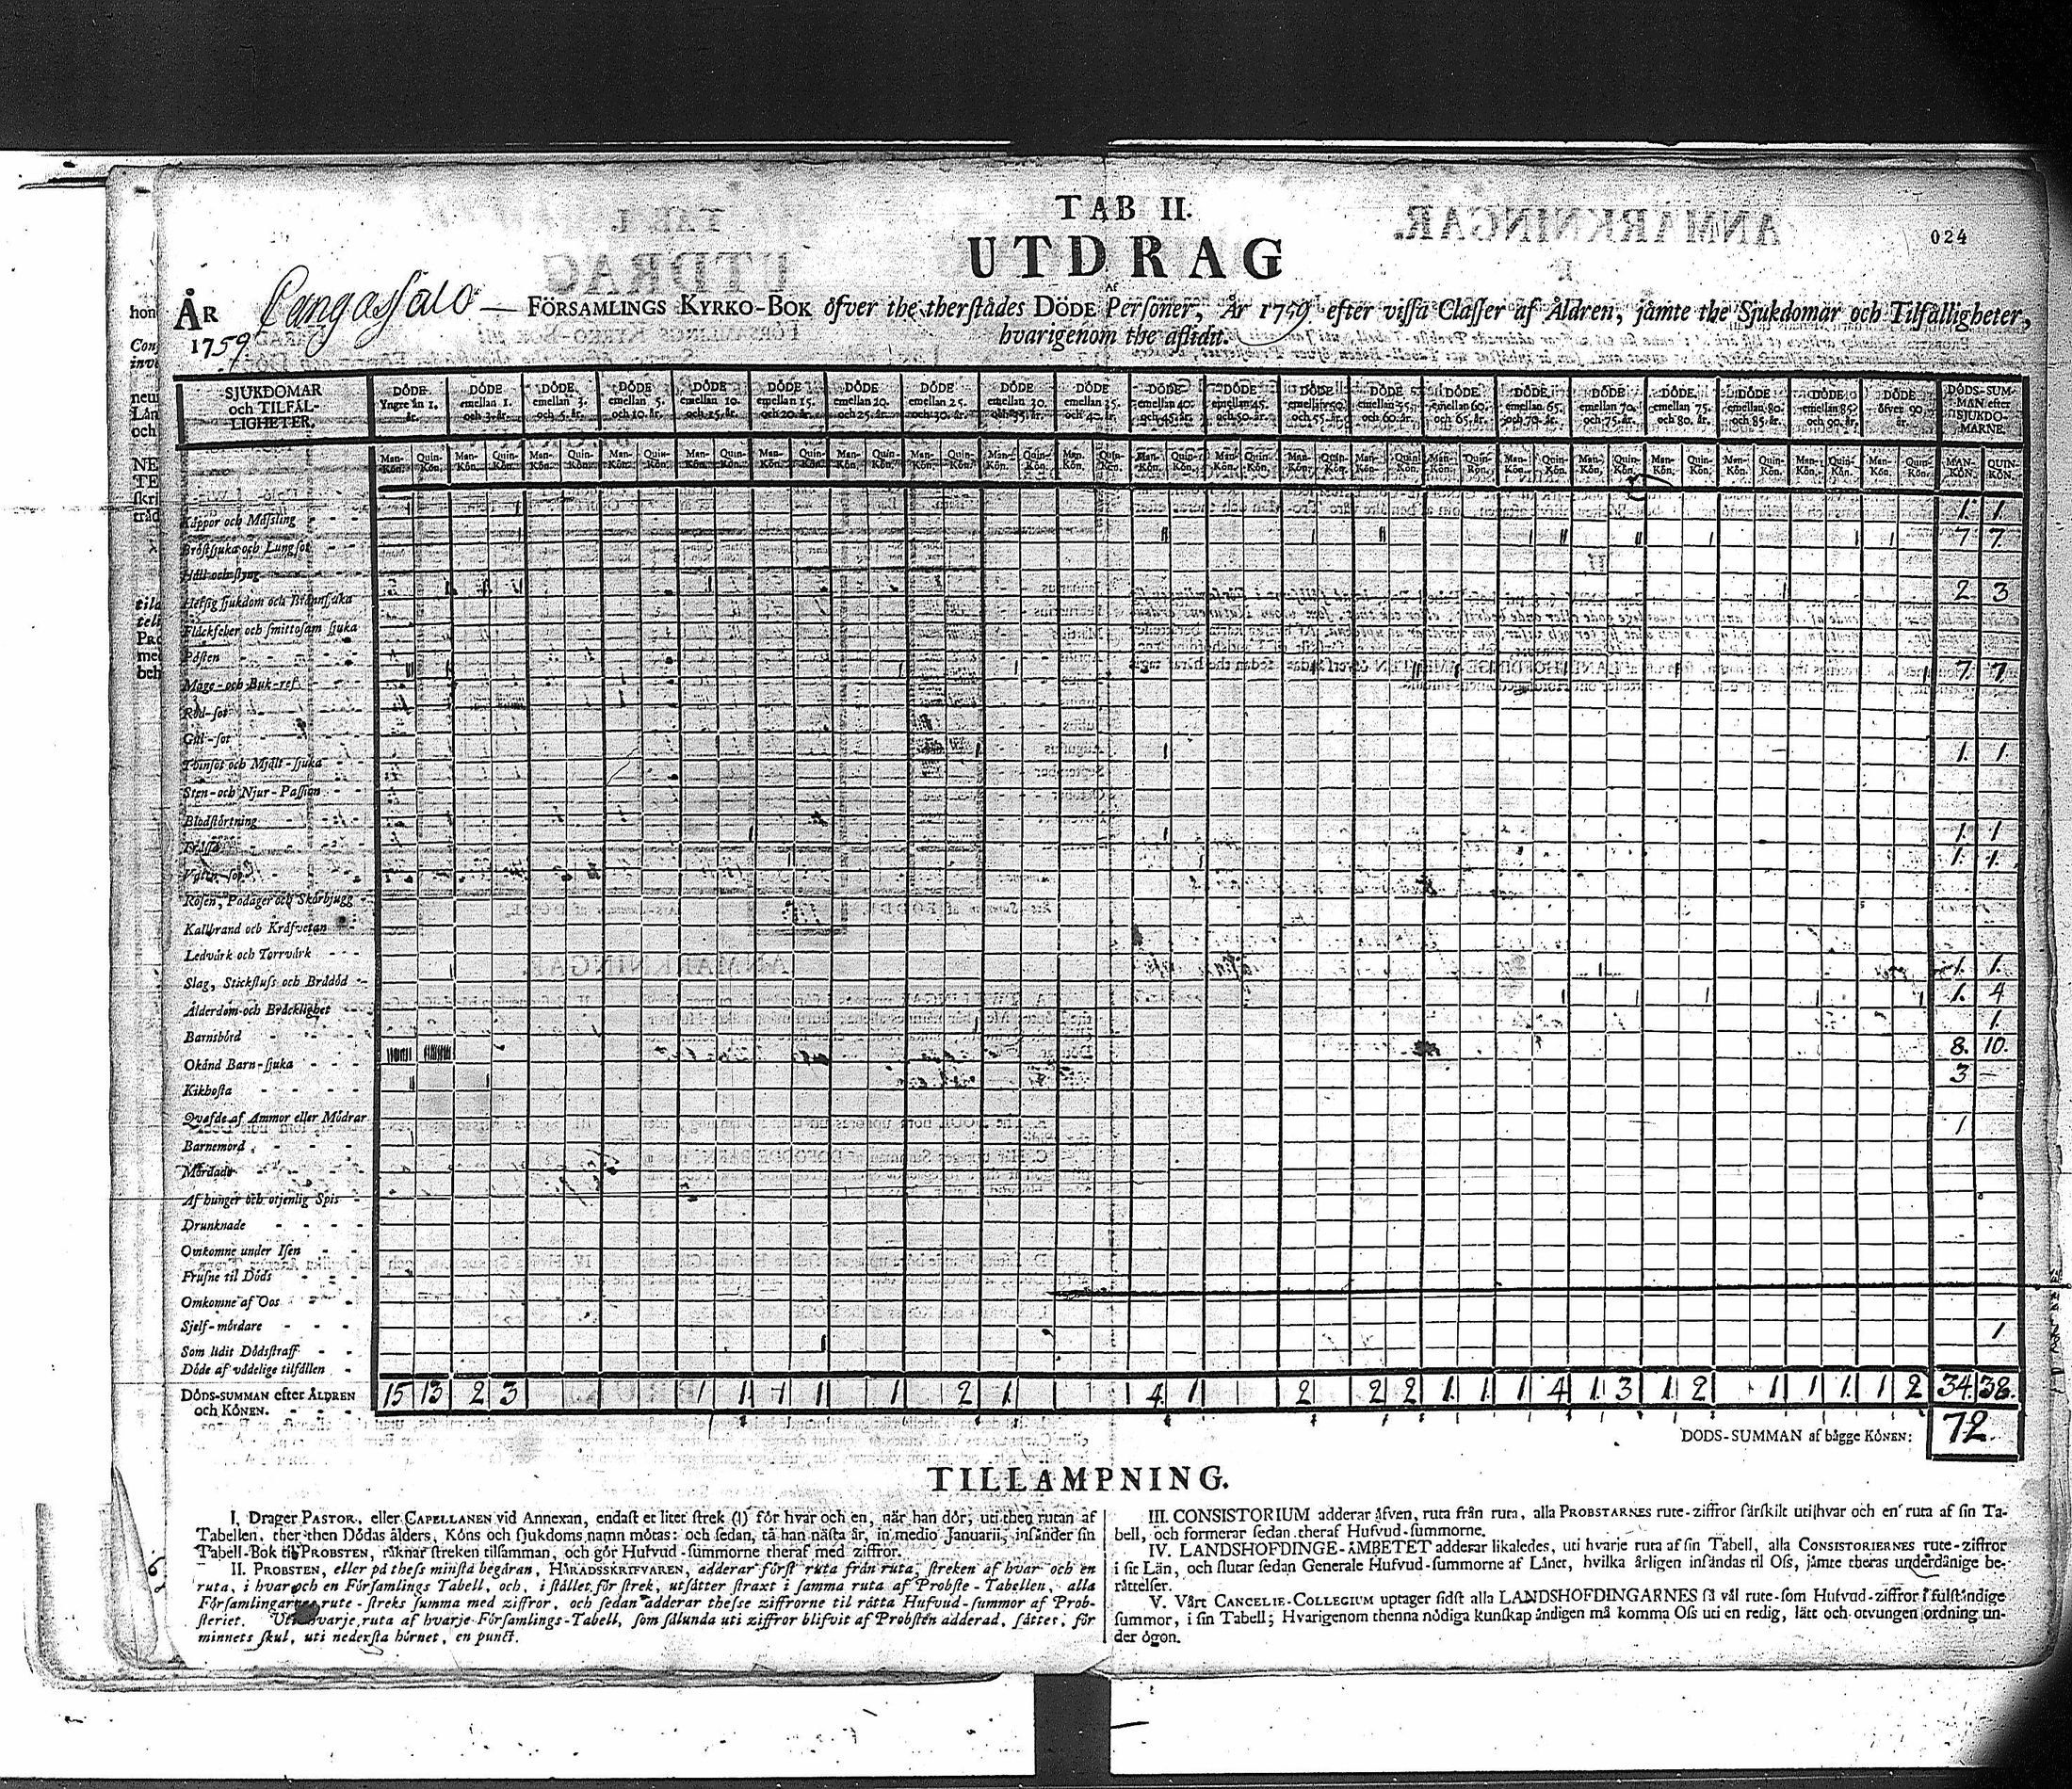 TAB II.
UTDRAG
024
Af
ÅR Cangasala FÖRSAMLINGS KYRKO-BOK öfver the therstädes DÖDE Personer, År 1759 efter vissa Classer af Åldren, jämte the Sjukdomar och Tilfälligheter,
1759 hvarigenom the aflidit.
SJUKDOMAR och TILFÄL-LIGHETER.
DÖDE Yngre än 1. år.
DÖDE emellan 1. och 3. år.
DÖDE emellan 3. och 5. år.
DÖDE emellan 5. och 10. år.
DÖDE emellan 10. och 15. år.
DÖDE emellan 15. och 20. år.
DÖDE emellan 20. och 25. år.
DÖDE emellan 25. och 30. år.
DÖDE emellan 30. och 35. år.
DÖDE emellan 35. och 40. år.
DÖDE emellan 40. och 45. år.
DÖDE emellan 45. och 50. år.
DÖDE emellan 50. och 55. år.
DÖDE emellan 55. och 60. år.
DÖDE emellan 60. och 65. år.
DÖDE emellan 65. och 70. år.
DÖDE emellan 70. och 75. år.
DÖDE emellan 75. och 80. år.
DÖDE emellan 80. och 85. år.
DÖDE emellan 85. och 90. år.
DÖDE öfver 90. år.
DÖDS-SUM-MAN efter SJUKDO-MARNE.
Man-Kön. Quin-Kön.
MAN-KÖN. QUIN-KÖN.
Koppor och Mässling 1. 1.
Bröstsjuka och Lungsot 7 7.
Håll och styng
Hetsig sjukdom och Brännsjuka 2 3
Fläckfeber och smittosam sjuka
Pästen
Mage- och Buk-ref 7. 7
Röd-sot
Gul-sot
Tvinsot och Mjält-sjuka 1. 1.
Sten- och Njur-Passion
Blodstörtning
Frässa 1. 1
Vatn-sot 1. 1.
Rosen, Podager och Skörbjugg
Kallbrand och Kräfvetan
Ledvärk och Torrvärk
Slag, Stickfluss och Brådöd 1. 1.
Ålderdom och Bräcklighet 1. 4
Barnsbörd 1.
Okänd Barn-sjuka 8. 10.
Kikhosta 3 —
Qväfde af Ammor eller Mödrar
Barnemord 1
Mördade
Af hunger och otjenlig Spis
Drunknade
Omkomne under Isen
Frusne til Döds
Omkomne af Oos
Sjelf-mördare
Som lidit Dödsstraff
Döde af vådelige tilfällen 1
DÖDS-SUMMAN efter ÅLDREN och KÖNEN. 15 13 2 3 1 1 1 1 1 2 1. 4. 1 2 2 2 1. 1. 1 4 1. 3 1. 2 1 1 1. 1 2 34. 38.
DÖDS-SUMMAN af bägge KÖNEN: 72.
TILLÄMPNING.
I. Drager PASTOR, eller CAPELLANEN vid Annexan, endast et litet strek (1) för hvar och en, när han dör, uti then rutan af
Tabellen, ther then Dödas ålders, Köns och sjukdoms namn mötas: och sedan, tå han nästa år, in medio Januarii, insänder sin
Tabell-Bok til PROBSTEN, räknar streken tilsamman, och gör Hufvud-summorne theraf med ziffror.
II. PROBSTEN, eller på thess minsta begäran, HÄRADSSKRIFVAREN, adderar först ruta från ruta, streken af hvar och en
ruta, i hvar och en Församlings Tabell, och, i stället för strek, utsätter straxt i samma ruta af Probste-Tabellen, alla
Församlingarnes rute-streks summa med ziffror, och sedan adderar thesse ziffrorne til rätta Hufvud-summor af Prob-
steriet. Uti hvarje ruta af hvarje Församlings-Tabell, som sålunda uti ziffror blifvit af Probsten adderad, sättes, för
minnets skul, uti nedersta hörnet, en punct.
III. CONSISTORIUM adderar äfven, ruta från ruta, alla PROBSTARNES rute-ziffror särskilt uti hvar och en ruta af sin Ta-
bell, och formerar sedan theraf Hufvud-summorne.
IV. LANDSHÖFDINGE-ÄMBETET adderar likaledes, uti hvarje ruta af sin Tabell, alla CONSISTORIERNES rute-ziffror
i sit Län, och slutar sedan Generale Hufvud-summorne af Länet, hvilka årligen insändas til Oss, jämte theras underdånige be-
rättelser.
V. Vårt CANCELIE-COLLEGIUM uptager sidst alla LANDSHÖFDINGARNES så väl rute-som Hufvud-ziffror i fulständige
summor, i sin Tabell; Hvarigenom thenna nödiga kunskap ändigen må komma Oss uti en redig, lätt och otvungen ordning un-
der ögon.